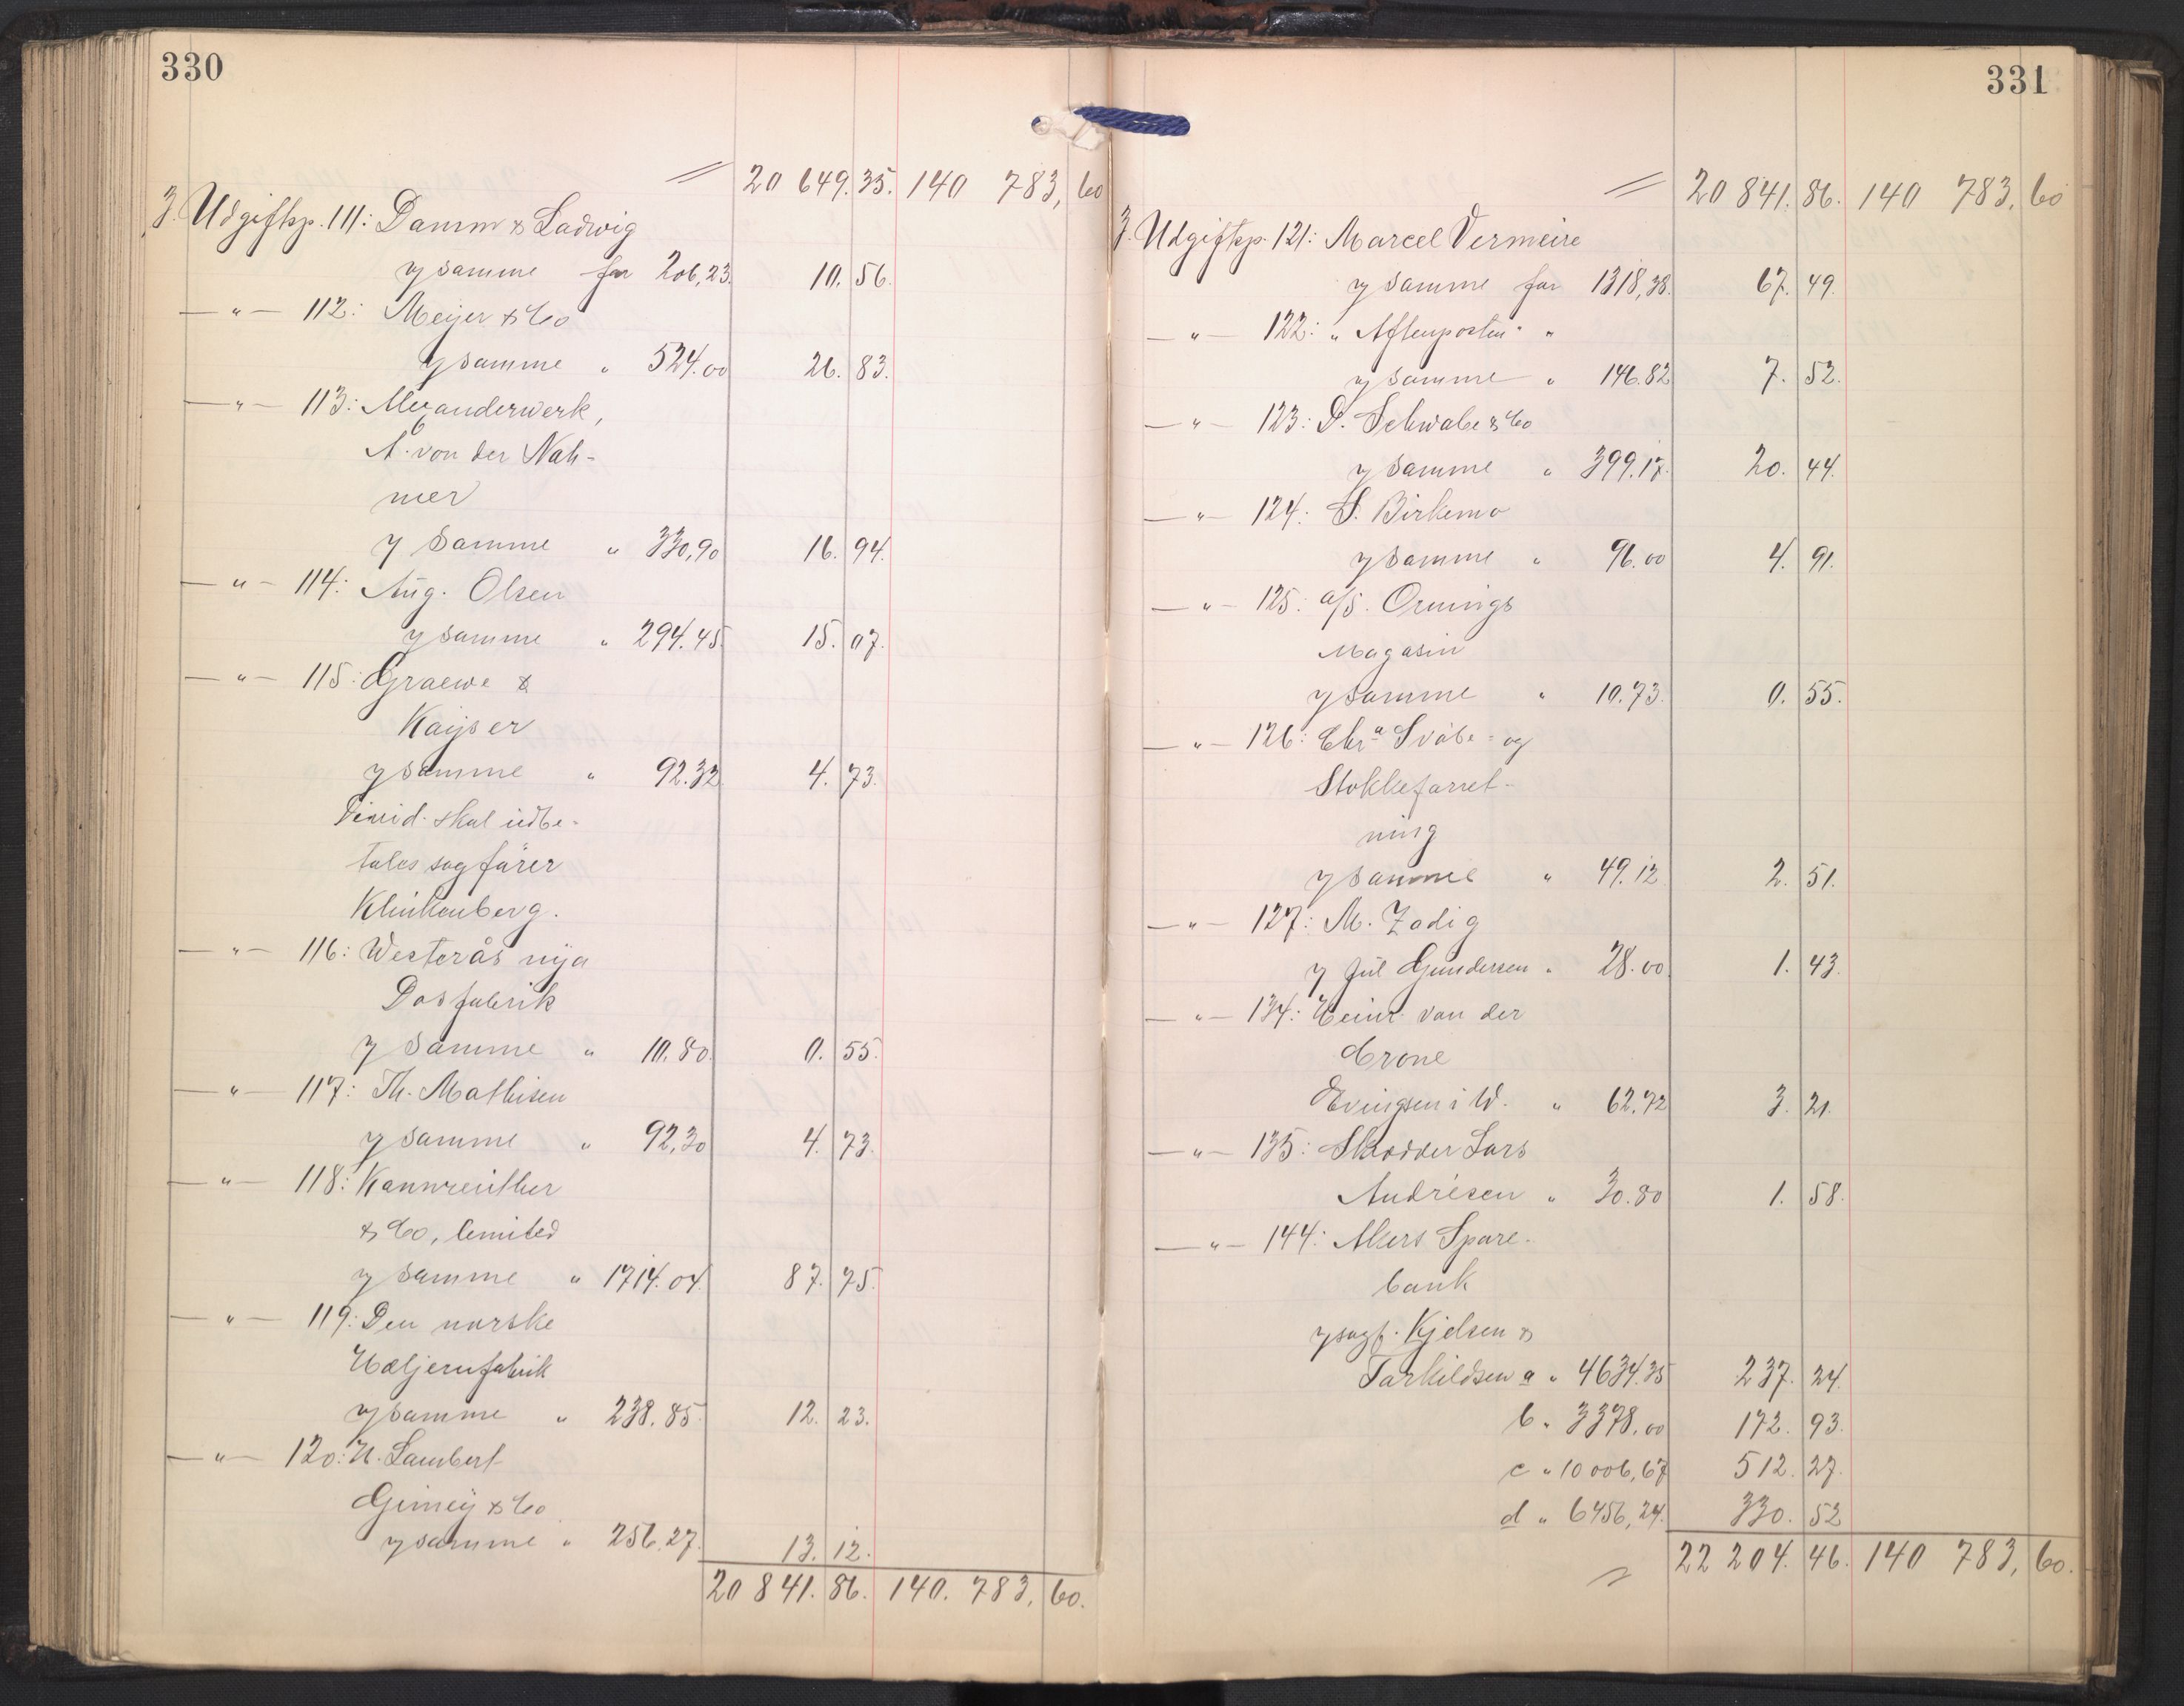 330
20 649. 35. 140 783, 60
3. Udgiftsp. 111: Damm & Ladwig
v/ samme for 206,23. 10. 56.
— " — 112: Meijer & Co
v/ samme " 524.00 26. 83.
— " — 113: Alexanderwerk,
A. von der Nah-
mer
v/ samme " 330,90 16. 94.
— " — 114: Aug. Olsen
v/ samme " 294.45. 15. 07.
— " — 115: Graewe &
Kayser
v/ samme " 92.32 4. 73.
Divid. skal udbe-
tales sagfører
Klinkenberg.
— " — 116: Westerås nya
Dosfabrik
v/ samme " 10.80. 0. 55.
— " — 117: Th. Mathisen
v/ samme " 92,30 4. 73.
— " — 118: Kannreuther
& Co, limited
v/ samme " 1714.04. 87. 75.
— " — 119: Den norske
Hæljernfabrik
v/ samme " 238.85. 12. 23.
— " — 120: H. Lambert
Gimey & Co
v/ samme " 256.27. 13. 12.
20 841. 86. 140. 783, 60.
331
20 841. 86. 140 783, 60
3. Udgiftsp. 121: Marcel Vermeire
v/ samme for 1318,38. 67. 49.
— " — 122: "Aftenposten" "
v/ samme " 146.82 7. 52.
— " — 123: D. Schwabe & Co
v/ samme " 399.17. 20. 44.
— " — 124: S. Birkemo
v/ samme " 96.00 4. 91.
— " — 125: a/s. Ornings
Magasin
v/ samme " 10.73. 0. 55.
— " — 126: Chra Svöbe- og
Stokkeforret-
ning
v/ samme " 49.12 2. 51.
— " — 127: M. Zadig
v/ Jul Gundersen " 28.00. 1. 43.
— " — 134: Heinr. von der
Crone
Evingsen i W. " 62.72 3. 21.
— " — 135: Skrædder Lars
Andrésen " 30.80 1. 58.
— " — 144: Akers Spare-
bank
v/ sagf. Kjelsen &
Tarkildsen a " 4634.35 237. 24.
b " 3378.00 172. 93.
c " 10 006,67 512. 27.
d " 6456,24. 330. 52
22 204. 46. 140 783, 60.